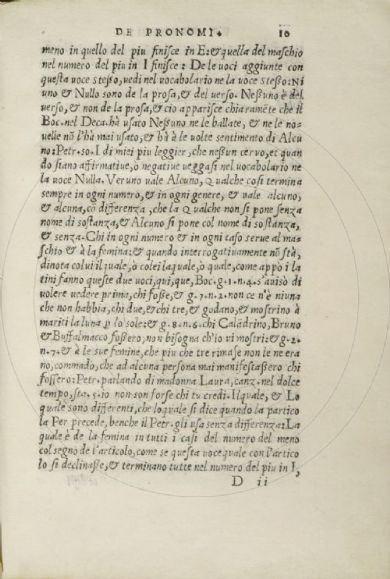 DE PRONOMI. 10
meno in quello del piu finisce in E: & quella del maschio
nel numero del piu in I finisce: De le voci aggiunte con
questa voce stesso, vedi nel vocabolario ne la voce stesso: Ni
uno & Nullo sono de la prosa, & del verso. Nessuno è del
verso, & non de la prosa, & cio apparisce chiaramēte che il
Boc. nel Deca. hà usato Nessuno ne le ballate, & ne le no-
uelle nō l'hà mai usato, & hà è le volte sentimento di Alcu
no: Petr. so. I di miei piu leggier, che nessun cervo, et quan
do siano affirmative, ò negative veggasi nel vocabolario ne
la voce Nulla. Veruno vale Alcuno, Qualche cosi termina
sempre in ogni numero, & in ogni genere, & vale alcuno,
& alcuna, cō differenza, che la Qualche non si pone senza
nome di sostanza, & Alcuno si pone col nome di sostanza,
& senza. Chi in ogni numero & in ogni caso serve al ma-
schio & à la femina: & quando interrogativamente nō stà,
dinota colui il quale, ò colei la quale, ò quale, come appò i la
tini fanno queste due voci, qui, que, Boc. g. 1. n. 4. s'avisò di
volere vedere prima, chi fosse, & g. 7. n. 2. non ce n'è niuna
che non habbia, chi due, & chi tre, & godano, & mostrino à
mariti la luna p lo sole: & g. 8. n. 6. chi Calādrino, Bruno
& Buffalmacco fossero, non bisogna ch'io vi mostri: & g. 2.
n. 7. & à le sue femine, che piu che tre rimase non le ne era
no, commado, che ad alcuna persona mai manifestassero chi
fossero: Petr. parlando di madonna Laura, canz. nel dolce
tempo, sta. 5. io non son forse chi tu credi. Il quale, & Lo
quale sono differenti, che lo quale si dice quando la partico
la Per precede, benche il Petr. gli usa senza differenza: La
quale è de la femina in tutti i casi del numero del meno
col segno de l'articolo, come se questa voce quale con l'artico
lo si declinasse, & terminano tutte nel numero del piu in I,
D ii